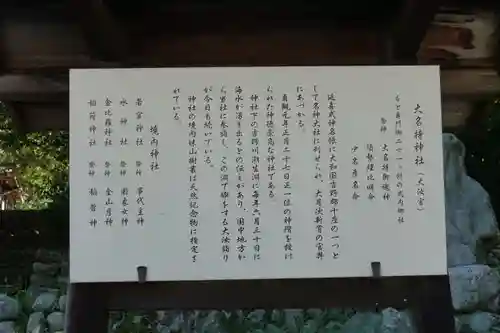 大名持神社（大汝宮）
祭神 大名持御魂神
須勢理比咩命
少名彦名命
延喜式神名帳に大和国吉野郡十座の一つと
して名神大社に列せられ、大月次新嘗の官幣
にあづかる。
貞観元年正月二十七日正一位の神階を授け
られた神徳崇高な神社である
神社下の吉野川潮生淵に毎年六月三十日に
海水が湧き出るとの伝えがあり、国中地方か
ら当社に参詣し、この淵で禊をする大汝詣り
が今日も続いている。
神社の境内妹山樹叢は天然記念物に指定さ
れている
境内神社
若宮神社 祭神 事代主神
水神社 祭神
金比羅神社 祭神 金山彦神
稲荷神社 祭神 稲荷神